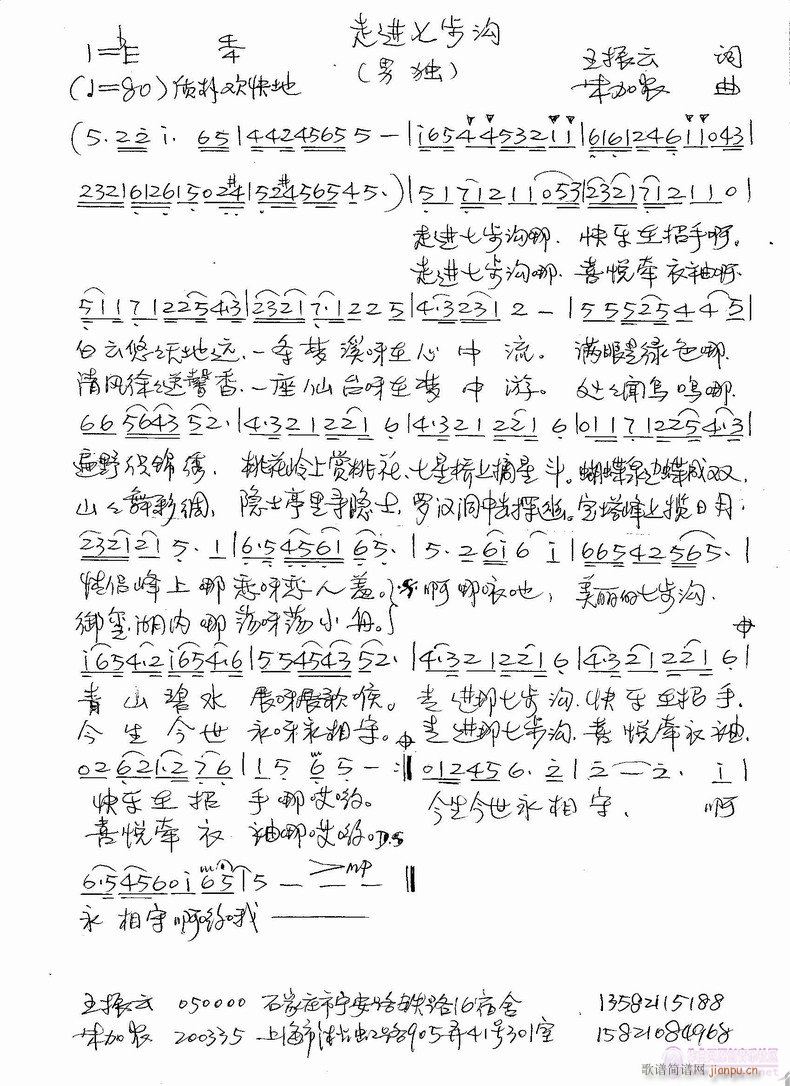 走进七步沟
1=♭E 4/4
(男独)
王振云 词
(♩=80)质朴欢快地
曲
(5·22i· 65|44424565 5 -|i65445321 1|6161246110 43|
23216126150 24|524565 45·)|517121105 3|23217121 10|
走进七步沟哪 快乐在招手啊。
走进七步沟哪 喜悦牵衣袖啊
51171225 43|23217·1225|4·3231 2 -|555525445|
白云悠悠天地远 一条梦溪呀在心中流。 满眼是绿色哪
清风徐徐送馨香 一座仙台呀在梦中游。 处处闻鸟鸣哪
66564352·|4·3212216|4·3212216|01171225 4·3|
遍野织锦绣, 桃花岭上赏桃花, 七星桥上摘星斗。蝴蝶泉边蝶成双
山山舞彩绸, 隐士亭里寻隐士, 罗汉洞中去探幽。宝塔峰上揽日月
2321215·1|6·5456165·|5·26i6 i|66542565·|
情侣峰上哪恋呀恋人羞。 啊哪咳地, 美丽的七步沟
御玺湖内哪荡呀荡小舟。
i654·2i654·6|5545454352·|4·3212216|4·3212216|
青山碧水展呀展歌喉。 走进那七步沟 快乐在招手
今生今世永呀永相守。 走进那七步沟 喜悦牵衣袖
02621·276|15 65 -:‖012456·2|2—2· i|
快乐在招手哪哎哟。 今生今世永相守, 啊
喜悦牵衣袖哪哎哟。D.S
6·54560i65|5 - - - ‖
mp
永相守啊哟哦
王振云 050000 石家庄市宁安路铁路16宿舍 13582115188
200335 上海市 2路905弄41号301室 15821084968
歌谱简谱网
jianpu.cn